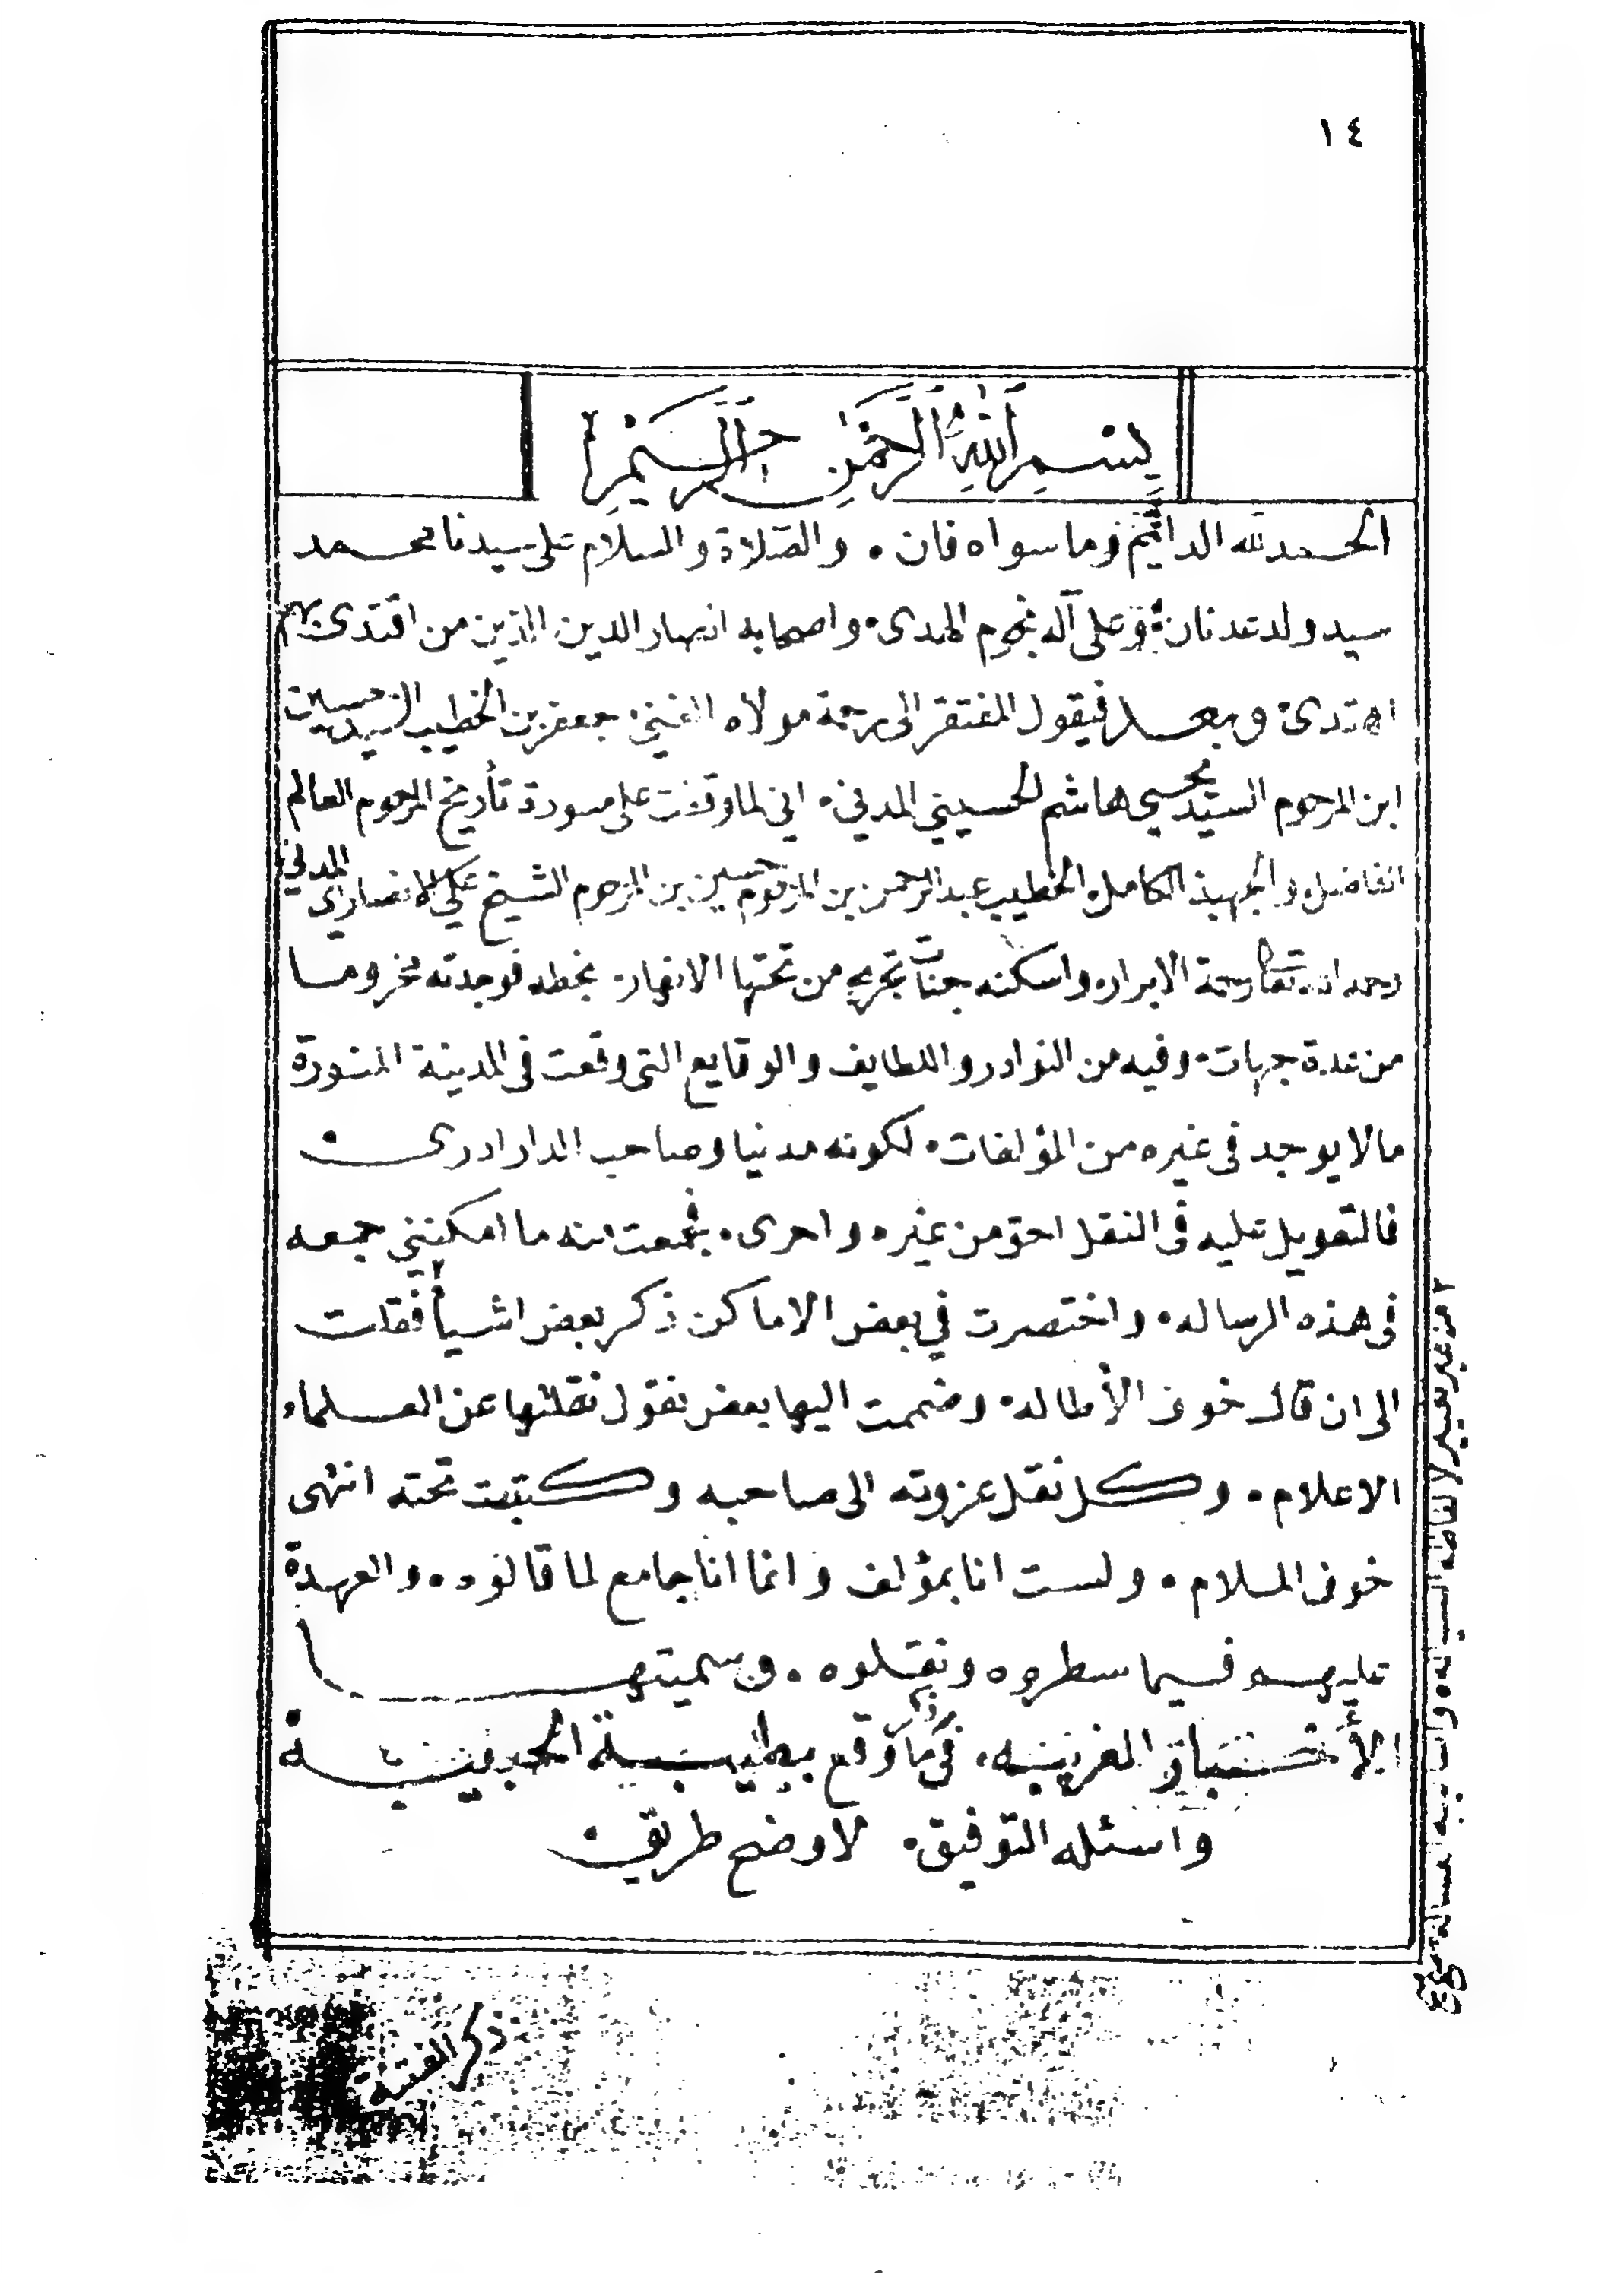 ١٤
بسم الله الرحمن الرحيم
الحمد لله الدائم وما سواه فان . والصلاة والسلام على سيدنا محمد
سيد ولد عدنان وعلى آله نجوم الهدى . واصحابه انصار الدين الذين من اقتدى بهم
اهتدى . وبعد فيقول المفتقر الى رحمة مولاه الغني . جعفر بن الخطيب السيد حسين
ابن المرحوم السيد يحيى هاشم الحسيني المدني . اني لما وقفت على مسودة تأريخ المرحوم العالم
الفاضل والجهبذ الكامل الخطيب عبد الرحمن بن المرحوم حسين بن المرحوم الشيخ علي الانصاري المدني
رحمه الله تعالى رحمة الابرار . واسكنه جنات تجري من تحتها الانهار . بخطه فوجدته مخروما
من عدة جهات . وفيه من النوادر واللطايف والوقايع التى وقعت فى المدينة المنورة
مالا يوجد فى غيره من المؤلفات . لكونه مدنيا وصاحب الدار ادرى
فالتعويل عليه فى النقل احق من غيره واحرى . فجمعت منه ما امكنني جمعه
فى هذه الرساله . واختصرت في بعض الاماكن ذكر بعض اشيأ فقلت ٢
الى ان قال خوف الأطاله . وضممت اليها بعض نقول نقلتها عن العلماء
الاعلام . وكل نقل عزوته الى صاحبه وكتبت تحته انتهى
خوف الملام . ولست انا بمؤلف وانما انا جامع لما قالوه . والعهدة
عليهم فيما سطروه ونقلوه . وسميتها
الأخبار الغريبه . فى ذكر ما وقع بطيبة الحبيبة
واسئله التوفيق . لاوضح طريق
٢ من غير تغيير لالفاظه
ذكر الفتنة